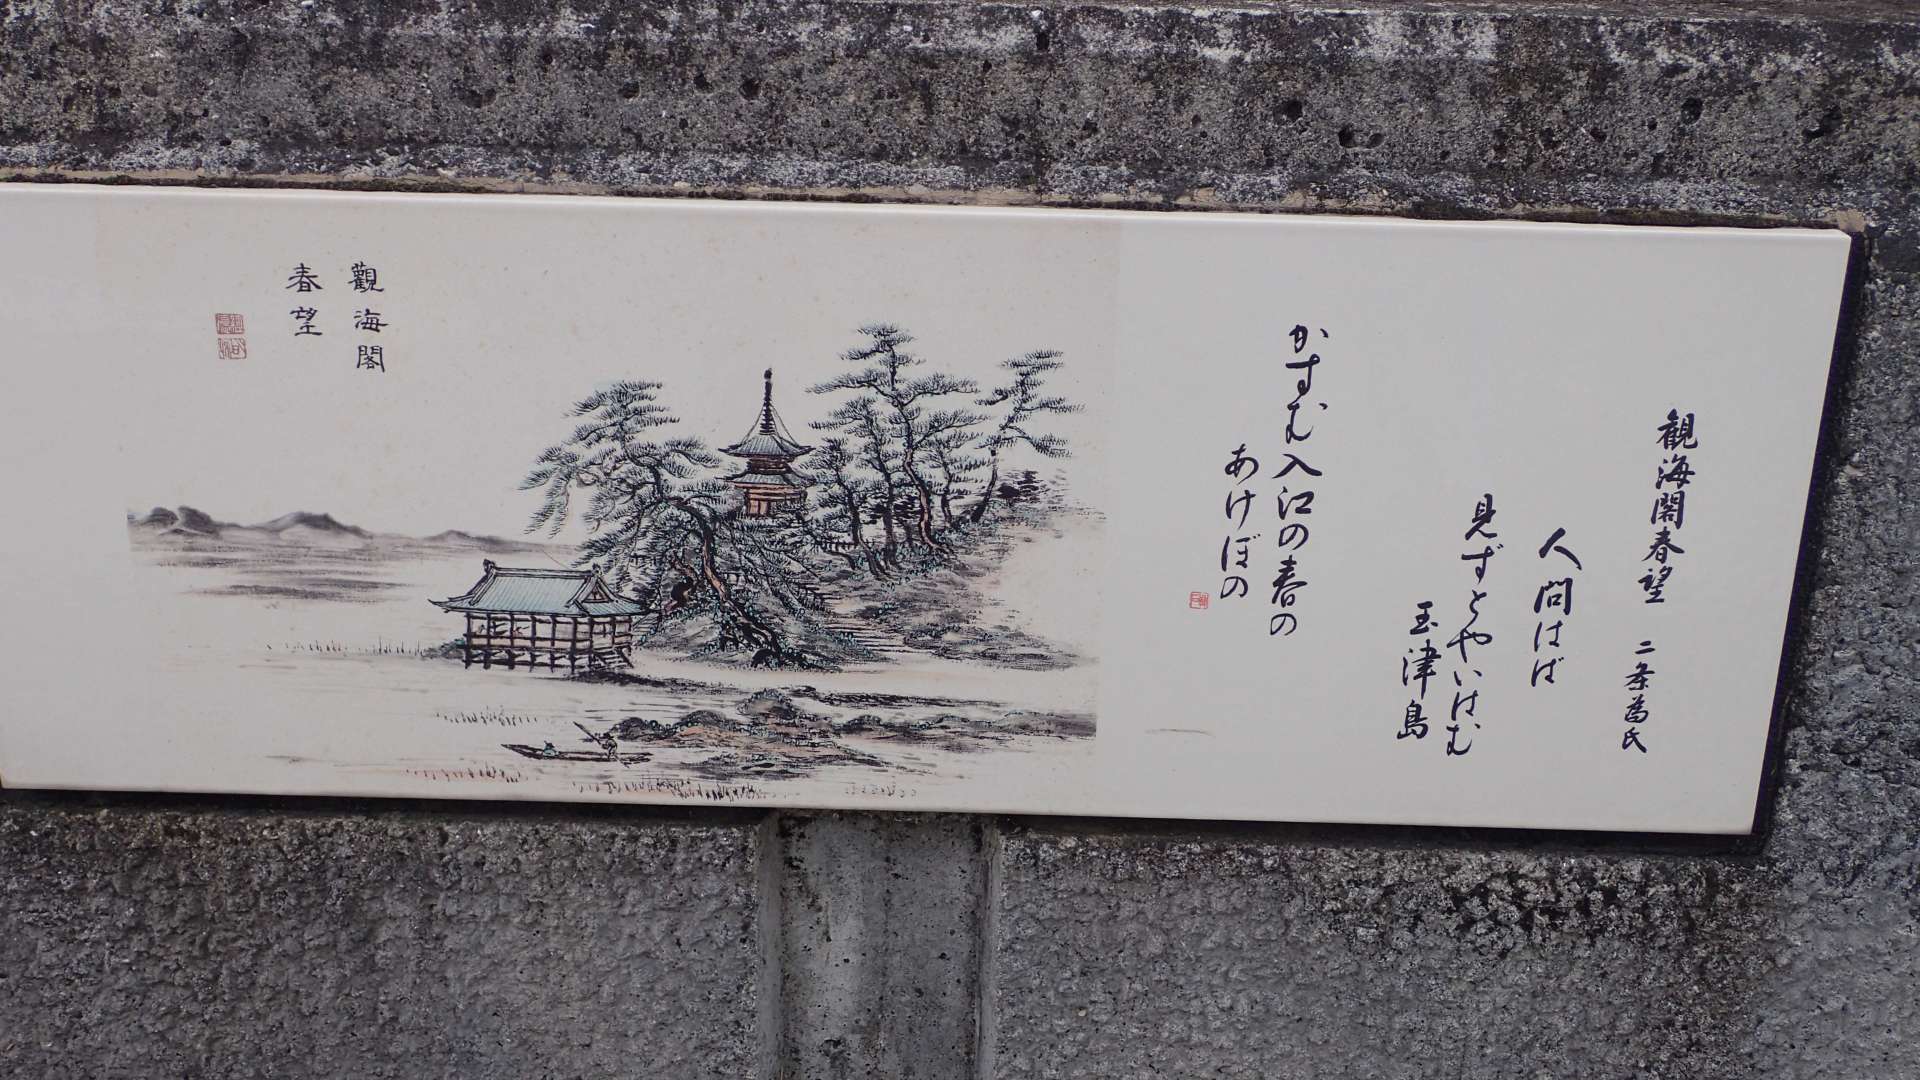 観海閣春望 二条為氏
人問はば
見ずとやいはむ
玉津島
かすむ入江の春の
あけぼの
觀海閣
春望